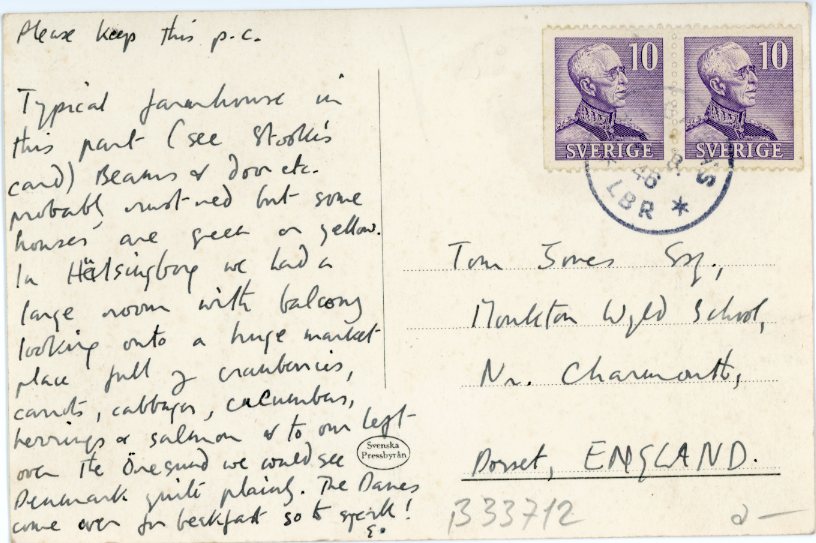 Please keep this p.c.
Typical farmhouse in
this part (see Stookie's
card) Beams & door etc.
probably rust-red but some
houses are green or yellow.
In Hälsingborg we had a
large room with balcony
looking onto a huge market
place full of cranberries,
carrots, cabbages, cucumbers,
herrings & salmon & to our left
over the Öresund we could see
Denmark quite plainly. The Danes
come over for breakfast so to speak!
E.
Svenska
Pressbyrån
10
SVERIGE
10
SVERIGE
46
8.
LBR *
Tom Jones Esq.,
Monkton Wyld School,
Nr. Charmouth,
Dorset, ENGLAND.
B33712
2 —